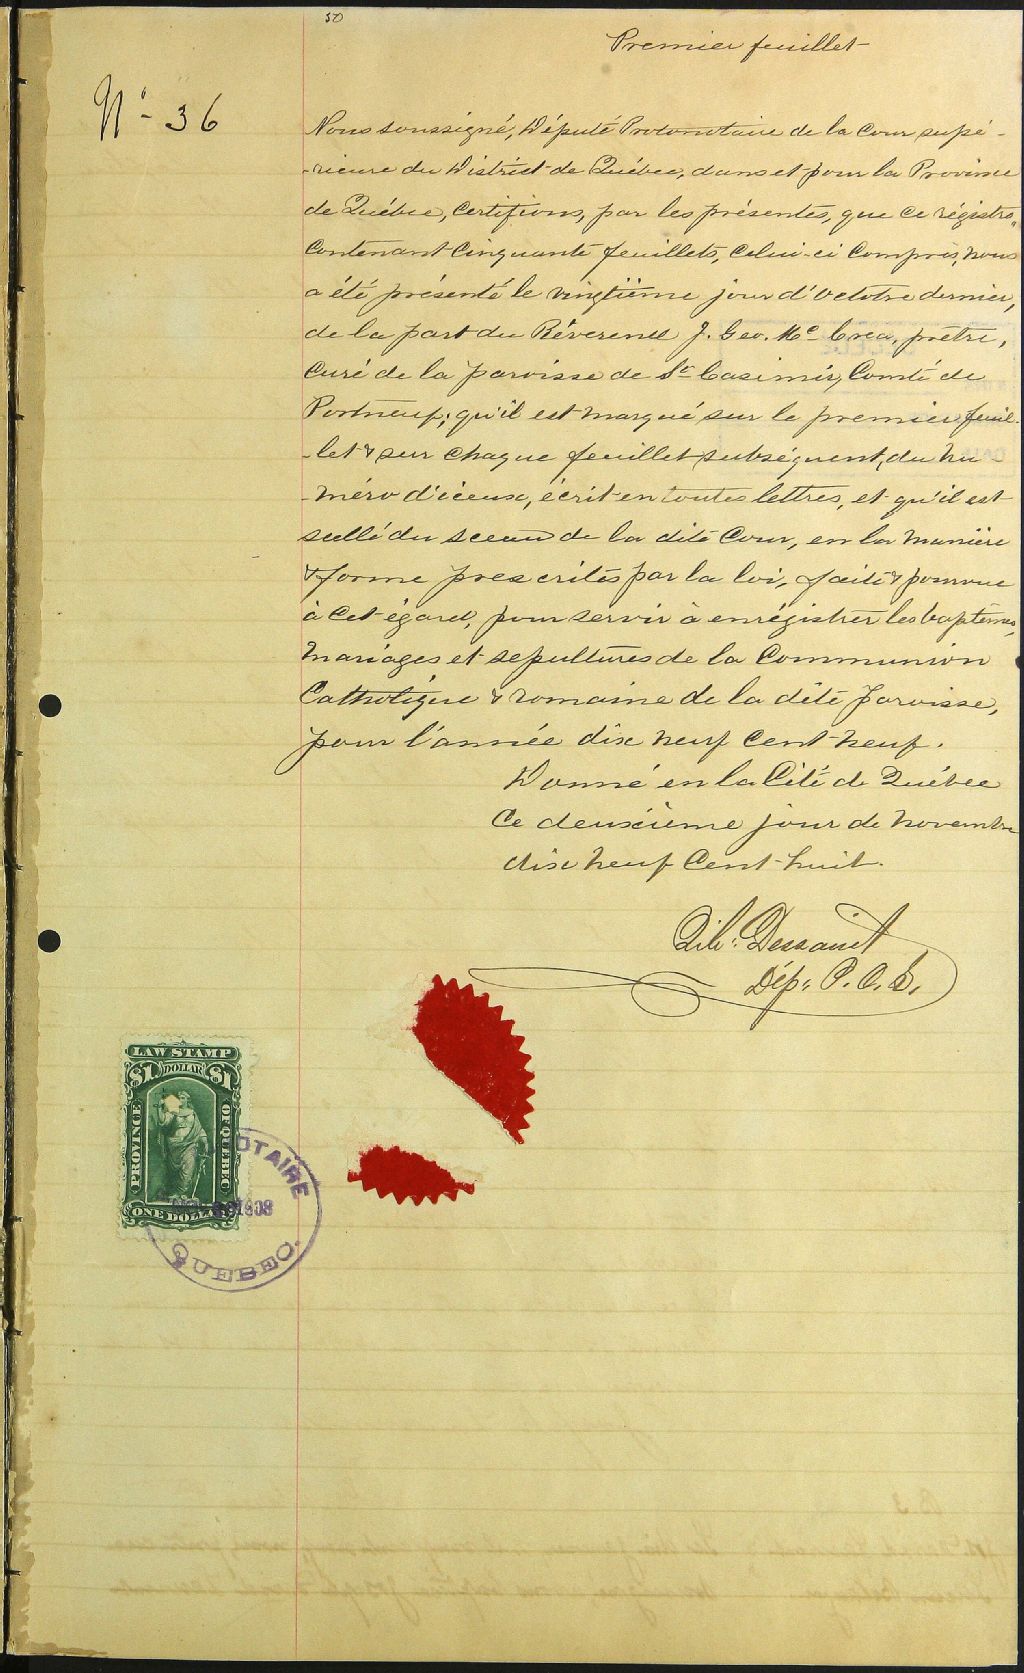 50
Premier feuillet
No - 36
Nous soussigné, Député Protonotaire de la Cour supé-
-rieure du District de Québec, dans et pour la Province
de Québec, certifions, par les présentes, que ce régistre,
contenant cinquante feuillets, celui-ci compris, nous
a été présenté le vingtième jour d'octobre dernier,
de la part du Réverend J. Geo. Mc Crea, prêtre,
Curé de la paroisse de St Casimir, Comté de
Portneuf; qu'il est marqué sur le premier feuil-
-let & sur chaque feuillet subséquent, du nu
-méro d'iceux, écrit en toutes lettres, et qu'il est
scellé du sceau de la dite Cour, en la manière
& forme prescrites par la loi, faite & pourvue
à cet égard, pour servir à enrégistrer les baptêmes,
mariages et sepultures de la Communion
Catholique & romaine de la dite paroisse,
pour l'année dix neuf cent neuf.
Donné en la Cité de Québec
Ce deuxième jour de novembre
dix neuf cent huit.
Dessault
Dép. P. C. S.
LAW STAMP
$1 DOLLAR $1
PROVINCE OF QUEBEC
ONE DOLLAR
OTAIRE
1908
QUEBEC.